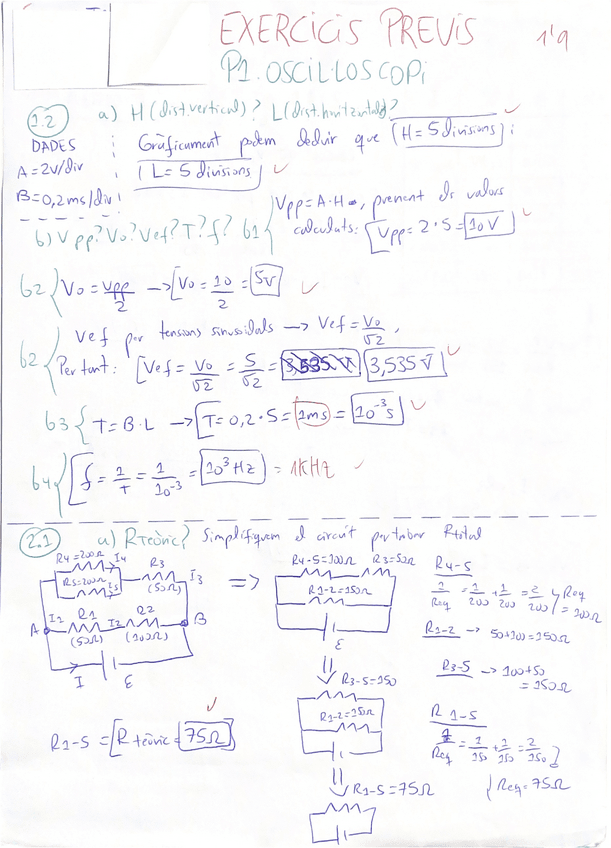 EXERCICIS PREVIS
1'9
P1. OSCIL·LOSCOPI
1.2 a) H (dist. vertical)? L (dist. horitzontal)?
DADES
A = 2V/div
B = 0,2 ms/div
Gràficament podem deduir que H = 5 divisions i
L = 5 divisions
b) Vpp? Vo? Vef? T? f?
b1 { Vpp = A·H, prenent els valors
calculats: [Vpp = 2·5 = 10V
b2 { Vo = Vpp/2 → [Vo = 10/2 = 5V
b2 { Vef per tensions sinusoidals → Vef = Vo/√2,
Per tant: [Vef = Vo/√2 = 5/√2 = 3,535 V 3,535 V]
b3 { T = B·L → [T = 0,2·5 = 1ms = 10⁻³ s]
b4 { [f = 1/T = 1/10⁻³ = 10³ Hz = 1KHz
2.1 a) R Teòric? Simplifiquem el circuit per trobar Rtotal
R4 = 200Ω I4
R5 = 200Ω I5
R3 (50Ω) I3
A I1 R1 (50Ω) I2 R2 (100Ω) B
I ε
=>
R4-5 = 100Ω R3 = 50Ω
R1-2 = 150Ω
ε
R3-5 = 150
R1-2 = 150Ω
R1-5 = 75Ω
R4-5
1/Req = 1/200 + 1/200 = 2/200 } Req = 100Ω
R1-2 → 50+100 = 150Ω
R3-5 → 100+50 = 150Ω
R 1-5
1/Req = 1/150 + 1/150 = 2/150 }
{ Req = 75Ω
R1-5 = [R teòric = 75Ω]